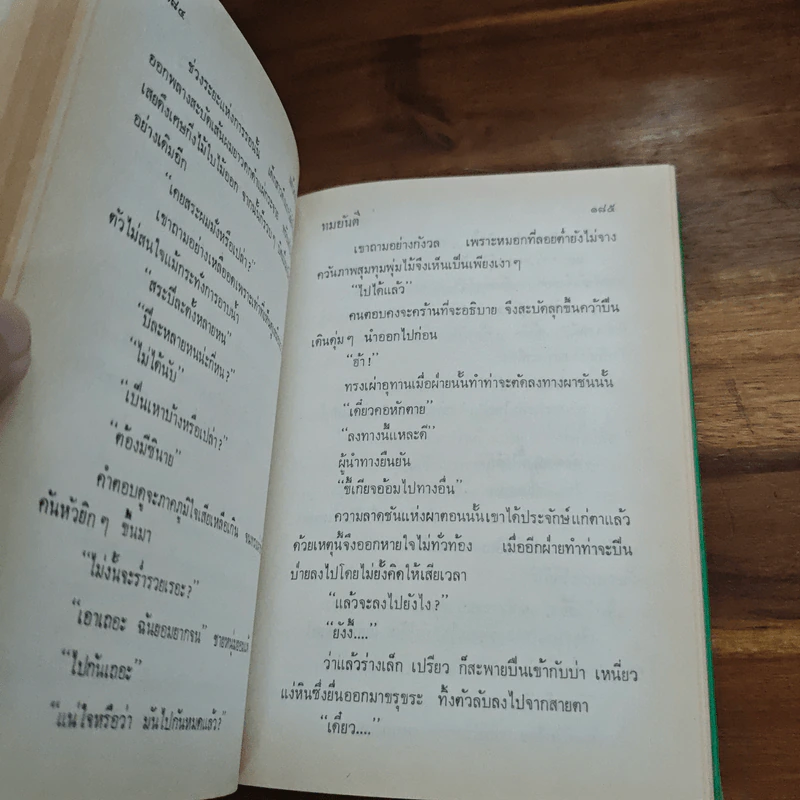 ช่วงระยะแห่งการรอนั้น
ออกพลางสะบัดเส้นผม
เสยดึงเศษกิ่งไม้ใบไม้ออก
อย่างเดิมอีก
“เคยสระผมมั่งหรือเปล่า?”
เขาถามอย่างเหลืออดเพราะเท่าที่
ตัวไม่สนใจแม้กระทั่งการอาบน้ำ
“สระปีละตั้งหลายหน”
“ปีละหลายหนน่ะกี่หน?”
“ไม่ได้นับ”
“เป็นเหาบ้างหรือเปล่า?”
“ต้องมีซินาย”
คำตอบดูจะภาคภูมิใจเสียเหลือเกิน
คันหัวยิกๆ ขึ้นมา
“ไม่งั้นจะร่ำรวยเรอะ?”
“เอาเถอะ ฉันยอมยากจน” ชายหนุ่ม
“ไปกันเถอะ”
“แน่ใจหรือว่า มันไปกันหมดแล้ว?”
ทมยันตี ๑๘๕
เขาถามอย่างกังวล เพราะหมอกที่ลอยต่ำยังไม่จาง
ควันภาพสุมทุมพุ่มไม้จึงเห็นเป็นเพียงเงาๆ
“ไปได้แล้ว”
คนตอบคงจะคร้านที่จะอธิบาย จึงสะบัดลุกขึ้นคว้าปืน
เดินดุ่มๆ นำออกไปก่อน
“ฮ้า!”
ทรงเผ่าอุทานเมื่อฝ่ายนั้นทำท่าจะตัดลงทางผาชันนั้น
“เดี๋ยวคอหักตาย”
“ลงทางนี้แหละดี”
ผู้นำทางยืนยัน
“ขี้เกียจอ้อมไปทางอื่น”
ความลาดชันแห่งผาตอนนั้นเขาได้ประจักษ์แก่ตาแล้ว
ด้วยเหตุนี้จึงออกหายใจไม่ทั่วท้อง เมื่ออีกฝ่ายทำท่าจะปีน
ป่ายลงไปโดยไม่ยั้งคิดให้เสียเวลา
“แล้วจะลงไปยังไง?”
“ยังงี้....”
ว่าแล้วร่างเล็ก เปรียว ก็สะพายปืนเข้ากับบ่า เหนี่ยว
แง่หินซึ่งยื่นออกมาขรุขระ ทิ้งตัวลับลงไปจากสายตา
“เดี๋ยว....”